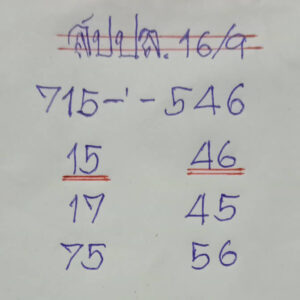 สัปปลิ. 16/9
715-'-546
15 46
17 45
75 56